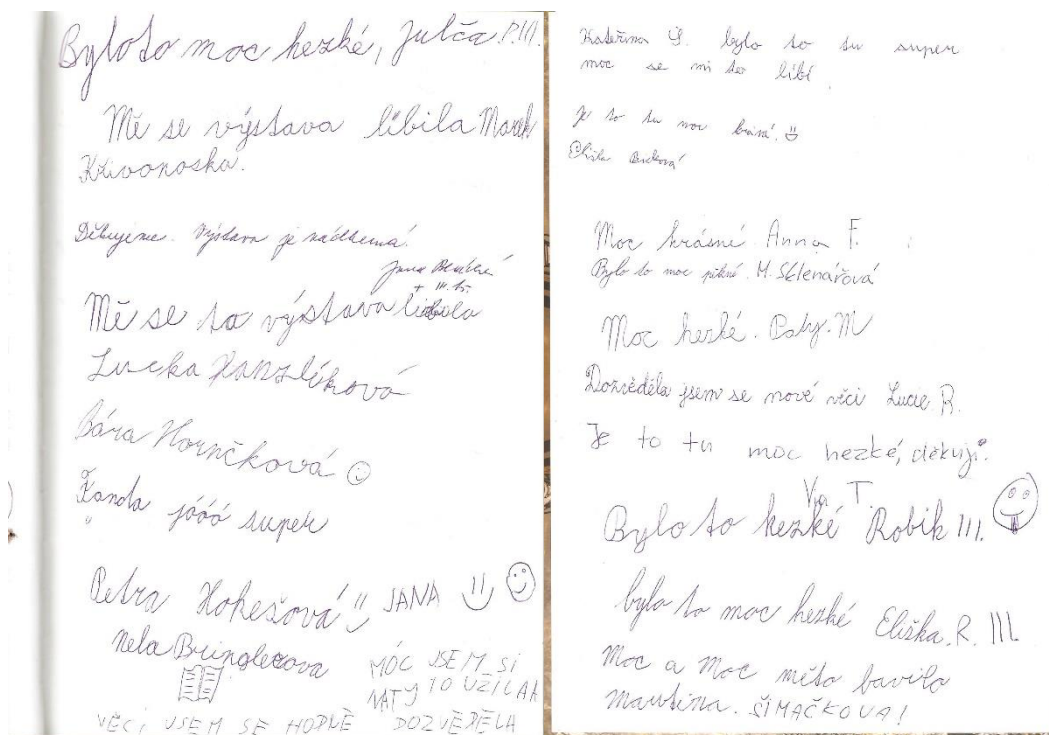 Bylo to moc hezké, Julča P.III.
Mě se výstava líbila Marek
Křivonoska.
Děkujeme. Výstava je nádherná!
Jana
+ III. tř.
Mě se ta výstava líbila
Lucka Kanzlíková
Bára Hornčková
Fanda jóóó super
Petra Hokešová JANA
Nela
MÓC JSEM SI
TO UŽILA A
NATY
VĚCÍ JSEM SE HODNĚ DOZVĚDĚLA
Kateřina S. bylo to tu super
moc se mi to líbí
Je to tu moc krásný.
Eliška
Moc krásné. Anna F.
Bylo to moc pěkné. M. Sklenářová
Moc hezké. Paty. M
Dozvěděla jsem se nové věci Lucie R.
Je to tu moc hezké, děkuji.
T.
Bylo to hezké Robik III.
bylo to moc hezké Eliška. R. III.
Moc a Moc měto bavilo
Martina. ŠIMAČKOVA!